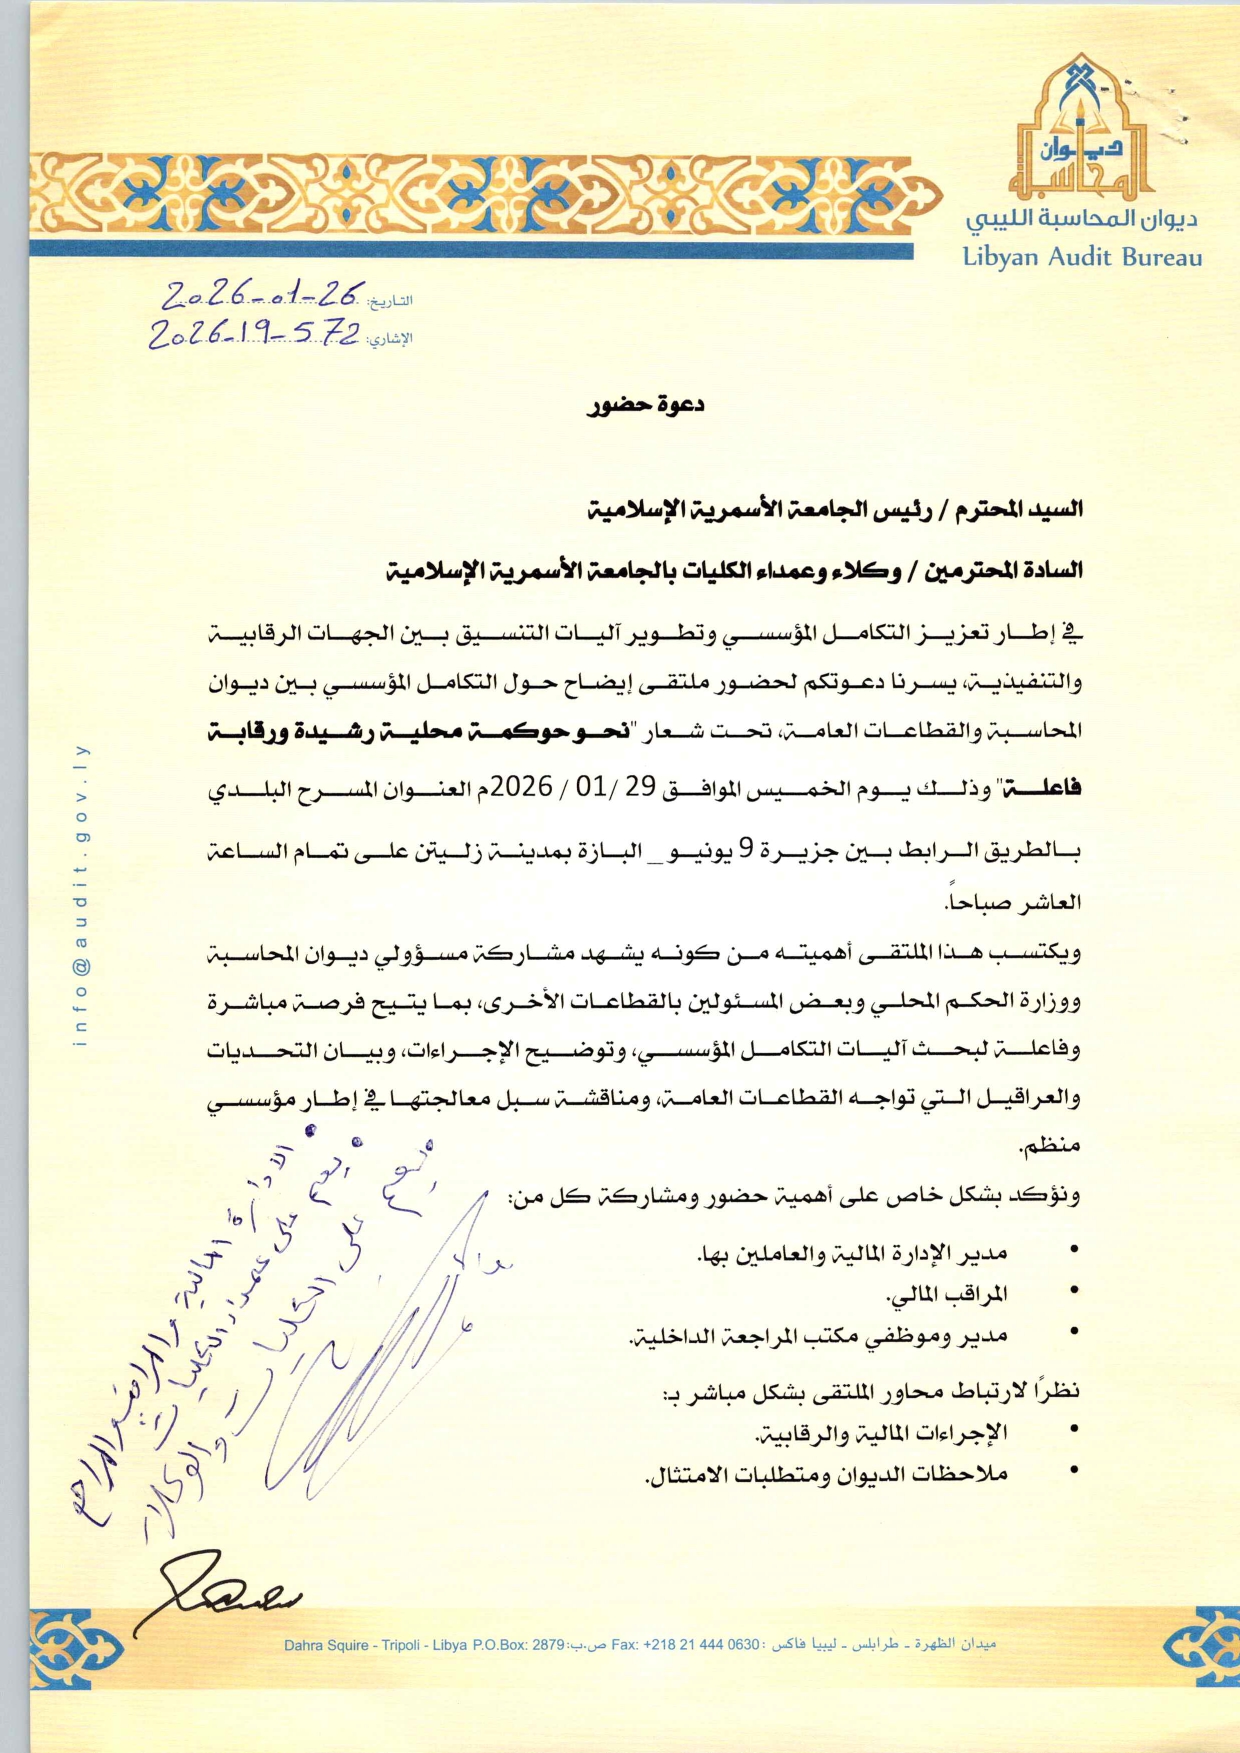 ديوان المحاسبة
ديوان المحاسبة الليبي
Libyan Audit Bureau
التاريخ: 2026-01-26
الإشاري: 2026-19-572
دعوة حضور
السيد المحترم / رئيس الجامعة الأسمرية الإسلامية
السادة المحترمين / وكلاء وعمداء الكليات بالجامعة الأسمرية الإسلامية
في إطار تعزيز التكامل المؤسسي وتطوير آليات التنسيق بين الجهات الرقابية
والتنفيذية، يسرنا دعوتكم لحضور ملتقى إيضاح حول التكامل المؤسسي بين ديوان
المحاسبة والقطاعات العامة، تحت شعار "نحو حوكمة محلية رشيدة ورقابة
فاعلة" وذلك يوم الخميس الموافق 29 /01 / 2026م العنوان المسرح البلدي
بالطريق الرابط بين جزيرة 9 يونيو_ البازة بمدينة زليتن على تمام الساعة
العاشر صباحاً.
ويكتسب هذا الملتقى أهميته من كونه يشهد مشاركة مسؤولي ديوان المحاسبة
ووزارة الحكم المحلي وبعض المسئولين بالقطاعات الأخرى، بما يتيح فرصة مباشرة
وفاعلة لبحث آليات التكامل المؤسسي، وتوضيح الإجراءات، وبيان التحديات
والعراقيل التي تواجه القطاعات العامة، ومناقشة سبل معالجتها في إطار مؤسسي
منظم.
ونؤكد بشكل خاص على أهمية حضور ومشاركة كل من:
• مدير الإدارة المالية والعاملين بها.
• المراقب المالي.
• مدير وموظفي مكتب المراجعة الداخلية.
نظرًا لارتباط محاور الملتقى بشكل مباشر بـ:
• الإجراءات المالية والرقابية.
• ملاحظات الديوان ومتطلبات الامتثال.
• الادارة المالية والمراقب والمراجع
• يعمم على عمداء الكليات
يعمم على الكليات والوكلاء
info@audit.gov.ly
Dahra Squire - Tripoli - Libya P.O.Box: 2879:ص.ب Fax: +218 21 444 0630 :ميدان الظهرة - طرابلس - ليبيا فاكس